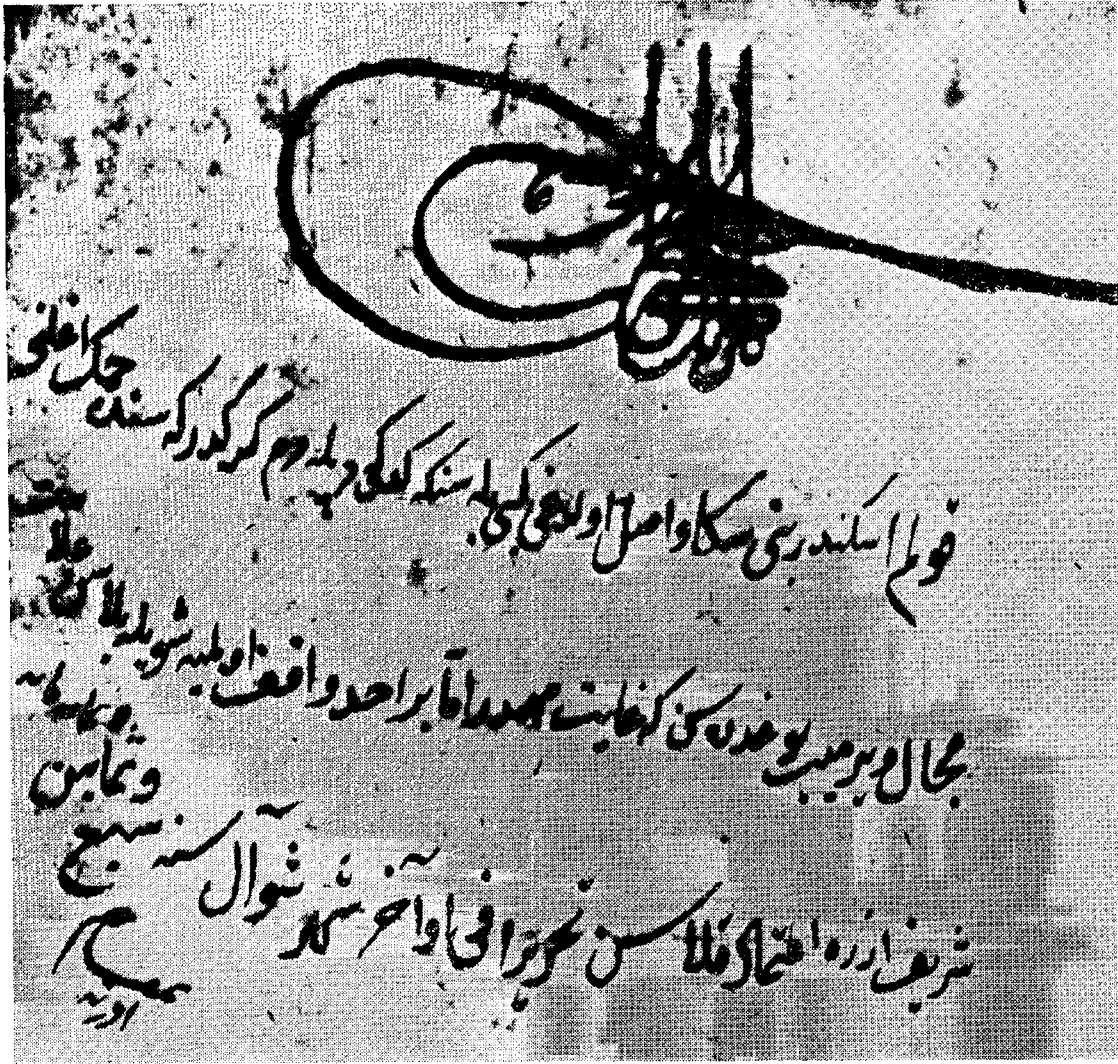 قولم اسكندر بتى سكا واصل اولدوغى كبى بله سنكه كدكى دپلدم كركدركه سنده جمك اغلنى
مجال ويرميب بوغدرهسن كه غايت مهمدر اما بر احد واقف اولميه شويله بلاسن علامت
شريف اوزره اعتماد قلاسن تحريرا فى اواخر شهر شوال سنه سبع وثمانين وثمانمايه
بمقام ادرنه